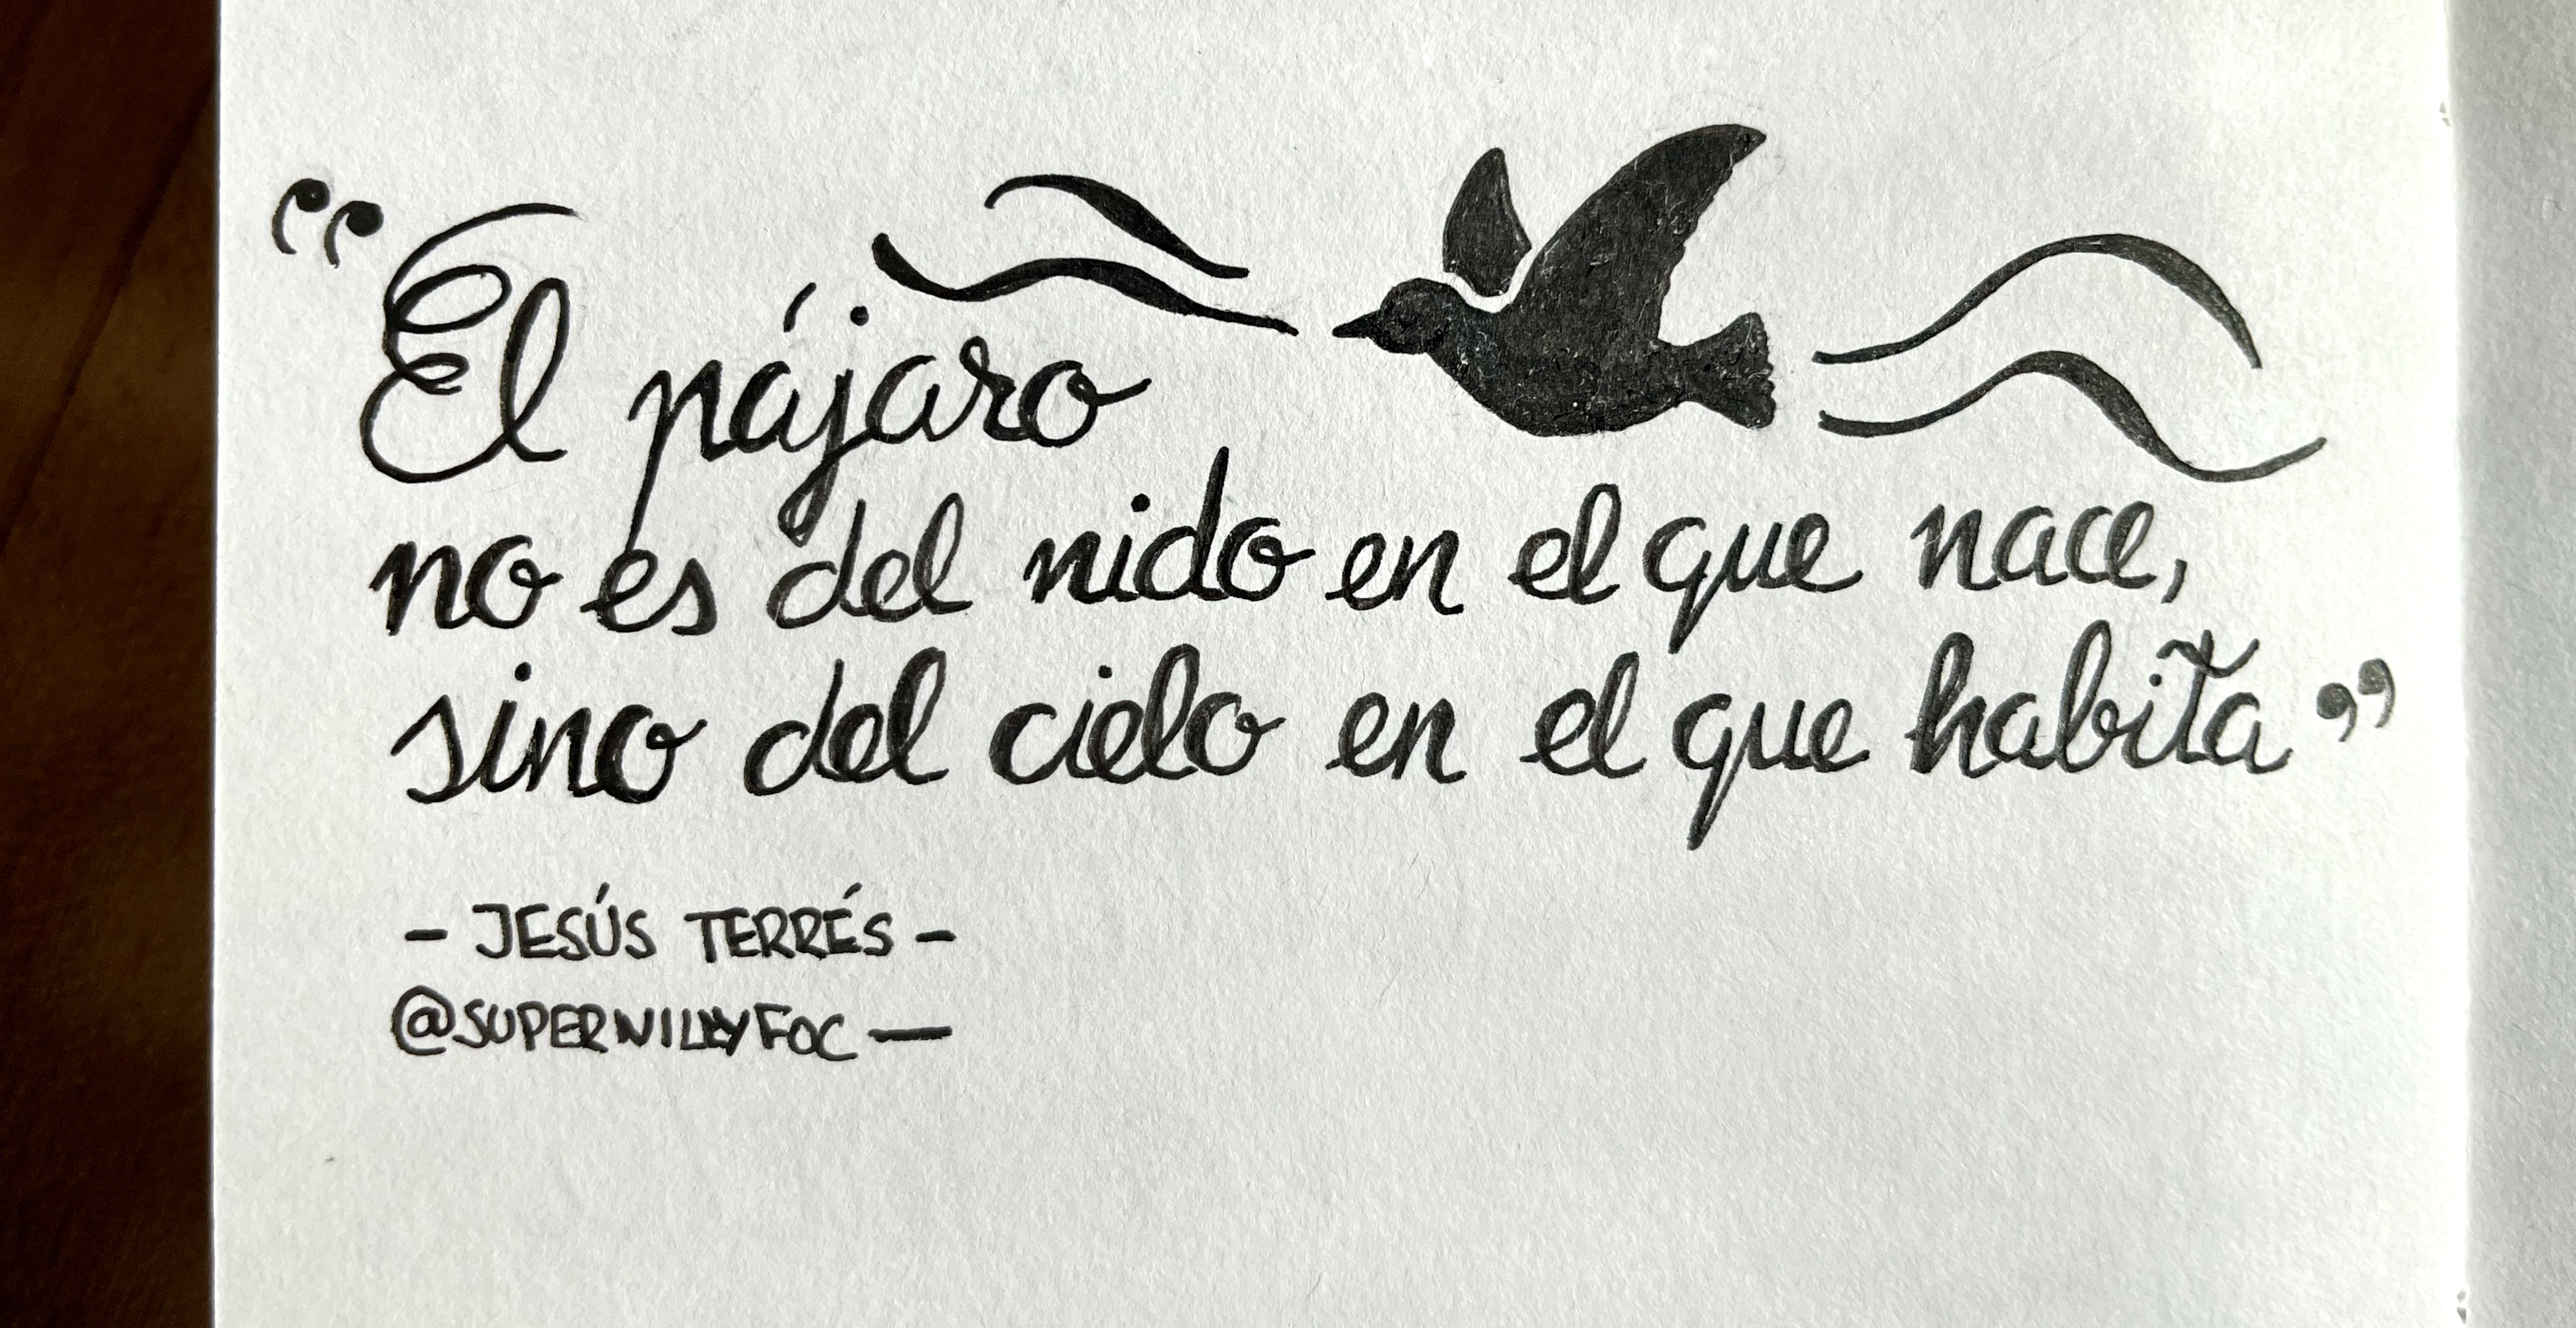 “El pájaro
no es del nido en el que nace,
sino del cielo en el que habita”
- JESÚS TERRÉS -
@SUPERNILLYFOC —